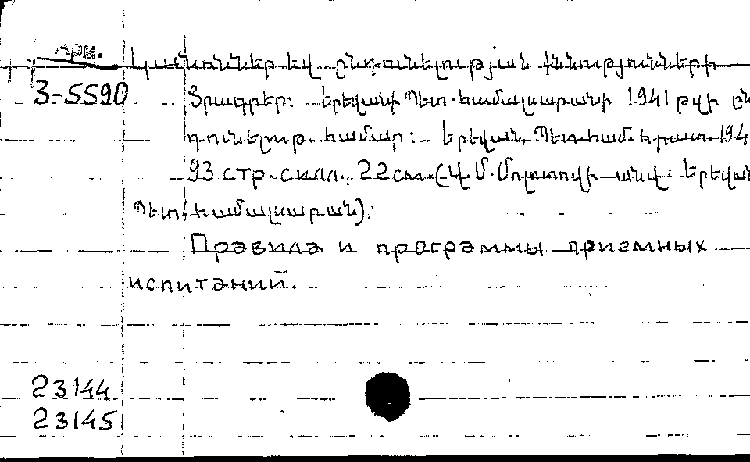 Арм.
Կանոններ եվ ընդունելության քննությունների
3-5590
Ծրագրեր: Երեվանի Պետ. համալսարանի 1941 թվի ըն
դունելութ. համար: Երեվան, Պետ. համ. հրատ. 194
93 стр. с илл. 22 см. (Վ. Մ. Մոլոտովի անվ. Երեվան
Պետ. համալսարան).
Правила и программы приемных
испитаний.
23144
23145